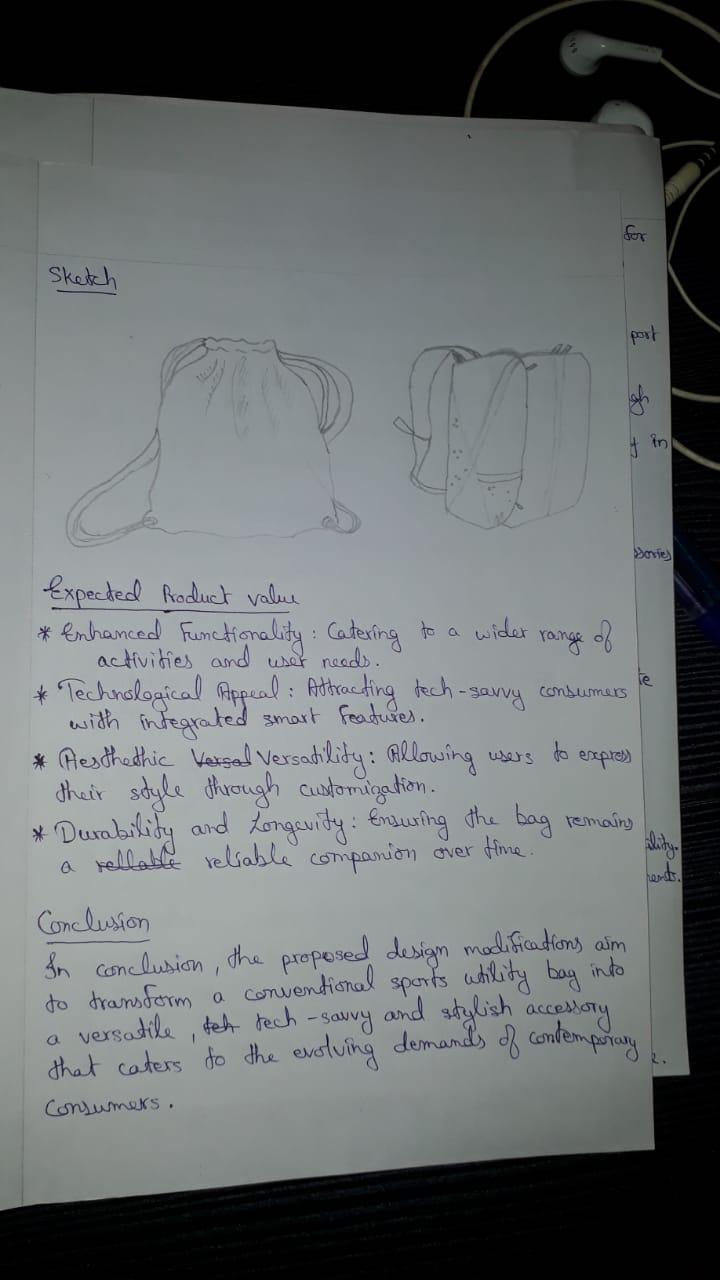 Sketch
Expected Product value
* Enhanced Functionality : Catering to a wider range of
activities and user needs.
* Technological Appeal : Attracting tech-savvy consumers
with integrated smart features.
* Aesthethic Versal Versatility : Allowing users to express
their style through customization.
* Durability and Longevity : Ensuring the bag remains
a rellable reliable companion over time.
Conclusion
In conclusion, the proposed design modifications aim
to transform a conventional sports utility bag into
a versatile, teh tech-savvy and stylish accessory
that caters to the evolving demands of contemporary
consumers.
for
port
gh
in
ssories
te
ility.
ents.